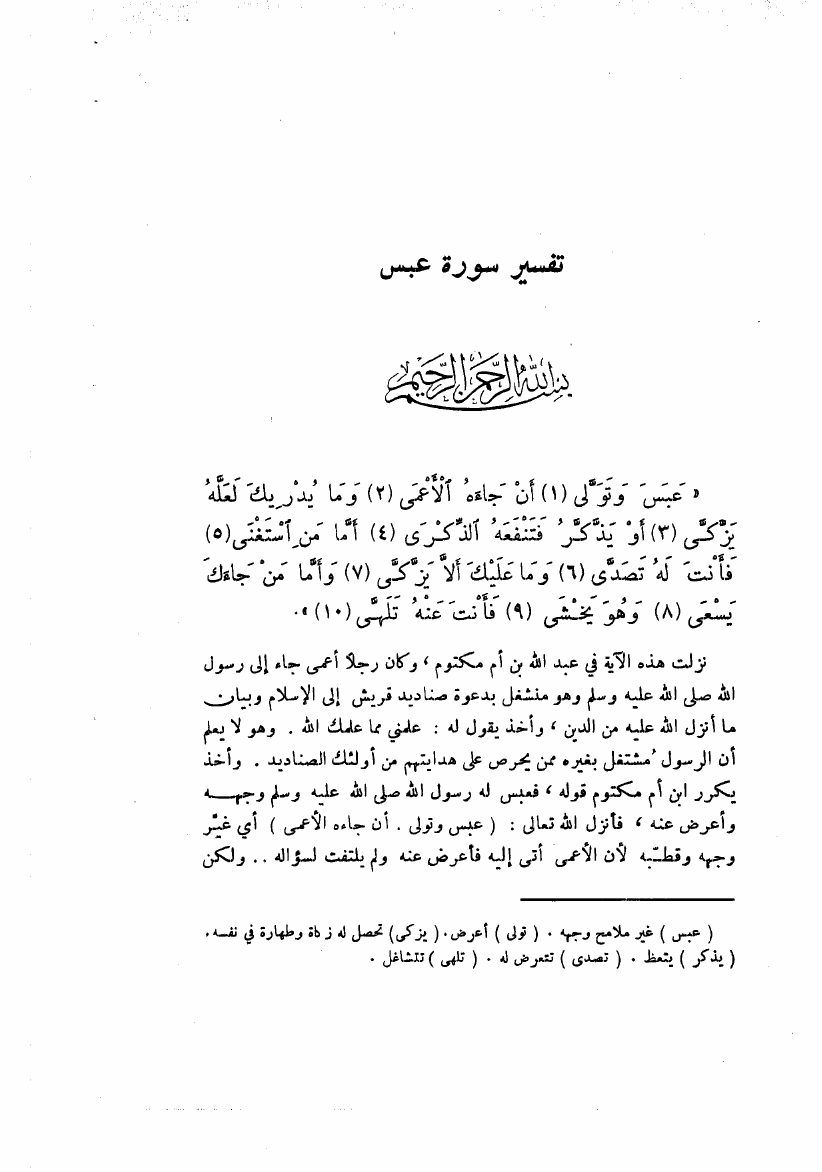 تفسير سورة عبس
بسم الله الرحمن الرحيم
« عَبَسَ وَتَوَلَّى (١) أَنْ جَاءَهُ ٱلْأَعْمَى (٢) وَمَا يُدْرِيكَ لَعَلَّهُ
يَزَّكَّى (٣) أَوْ يَذَّكَّرُ فَتَنْفَعَهُ ٱلذِّكْرَى (٤) أَمَّا مَنِ ٱسْتَغْنَى (٥)
فَأَنْتَ لَهُ تَصَدَّى (٦) وَمَا عَلَيْكَ أَلَّا يَزَّكَّى (٧) وَأَمَّا مَنْ جَاءَكَ
يَسْعَى (٨) وَهُوَ يَخْشَى (٩) فَأَنْتَ عَنْهُ تَلَهَّى (١٠) » .
نزلت هذه الآية في عبد الله بن أم مكتوم ، وكان رجلاً أعمى جاء إلى رسول
الله صلى الله عليه وسلم وهو منشغل بدعوة صناديد قريش إلى الإسلام وبيان
ما أنزل الله عليه من الدين ، وأخذ يقول له : علمني مما علمك الله . وهو لا يعلم
أن الرسول مُشتغل بغيره ممن يحرص على هدايتهم من أولئك الصناديد . وأخذ
يكرر ابن أم مكتوم قوله ، فعبس له رسول الله صلى الله عليه وسلم وجهه
وأعرض عنه ، فأنزل الله تعالى : ( عبس وتولى . أن جاءه الأعمى ) أي غيَّر
وجهه وقطَّبه لأن الأعمى أتى إليه فأعرض عنه ولم يلتفت لسؤاله .. ولكن
( عبس ) غير ملامح وجهه . ( تولى ) أعرض . ( يزكى ) تحصل له زكاة وطهارة في نفسه .
( يذكر ) يتعظ . ( تصدى ) تتعرض له . ( تلهى ) تتشاغل .